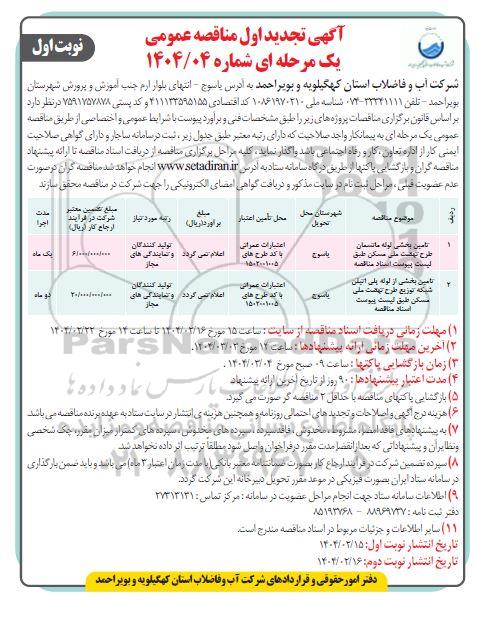 آگهی تجدید اول مناقصه عمومی
یک مرحله ای شماره ۱۴۰۴/۰۴
نوبت اول
شرکت آب و فاضلاب استان کهگیلویه و بویراحمد به آدرس یاسوج - انتهای بلوار ارم جنب آموزش و پرورش شهرستان
بویراحمد - تلفن ۳۳۳۴۱۱۱۱-۰۷۴ شناسه ملی ۱۰۸۶۱۹۷۰۲۱۰ کد اقتصادی ۴۱۱۱۳۳۵۹۵۱۵۵ و کد پستی ۷۵۹۱۷۵۷۸۷۸ در نظر دارد
بر اساس قانون برگزاری مناقصات پروژه های زیر را طبق مشخصات فنی و برآورد پیوست با شرایط عمومی و اختصاصی از طریق مناقصه
عمومی یک مرحله ای به پیمانکار واجد صلاحیت که دارای رتبه معتبر طبق جدول زیر ، ثبت در سامانه ساجار و دارای گواهی صلاحیت
ایمنی کار از اداره تعاون ، کار و رفاه اجتماعی باشد واگذار نماید . کلیه مراحل برگزاری مناقصه از دریافت اسناد مناقصه تا ارائه پیشنهاد
مناقصه گران و بازگشایی پاکتها از طریق درگاه سامانه ستاد به آدرس www.setadiran.ir انجام خواهد شد مناقصه گران در صورت
عدم عضویت قبلی ، مراحل ثبت نام در سایت مذکور و دریافت گواهی امضای الکترونیکی را جهت شرکت در مناقصه محقق سازند
ردیف
موضوع مناقصه
شهرستان محل تحویل
محل تأمین اعتبار
مبلغ برآورد(ریال)
رتبه مورد نیاز
مبلغ تضمین معتبر شرکت در فرآیند ارجاع کار (ریال)
مدت اجرا
۱
تامین بخشی لوله مانیسمان طرح نهضت ملی مسکن طبق لیست پیوست اسناد مناقصه
یاسوج
اعتبارات عمرانی با کد طرح های ۱۵۰۲۰۰۱۰۰۵
اعلام نمی گردد
تولید کنندگان و نمایندگی های مجاز
۶/۰۰۰/۰۰۰/۰۰۰
یک ماه
۲
تامین بخشی از لوله پلی اتیلن شبکه توزیع طرح نهضت ملی مسکن طبق لیست پیوست اسناد مناقصه
یاسوج
اعتبارات عمرانی با کد طرح های ۱۵۰۲۰۰۱۰۰۵
اعلام نمی گردد
تولید کنندگان و نمایندگی های مجاز
۲۰/۰۰۰/۰۰۰/۰۰۰
دو ماه
۱) مهلت زمانی دریافت اسناد مناقصه از سایت : ساعت ۱۵ مورخ ۱۴۰۴/۰۲/۱۶ تا ساعت ۱۴ مورخ ۱۴۰۴/۰۲/۲۲
۲) آخرین مهلت زمانی ارائه پیشنهادها : ساعت ۱۴ مورخ ۱۴۰۴/۰۳/۰۳ .
۳) زمان بازگشایی پاکتها : ساعت ۰۹ صبح مورخ ۱۴۰۴/۰۳/۰۴ .
۴) مدت اعتبار پیشنهادها : ۹۰ روز از تاریخ آخرین ارائه پیشنهاد
۵) بازگشایی پاکتهای مناقصه با حداقل ۲ مناقصه گر صورت می گیرد.
۶) هزینه درج آگهی و اصلاحات و تجدید های احتمالی روزنامه و همچنین هزینه ی انتشار در سایت ستاد به عهده برنده مناقصه می باشد
۷) به پیشنهادهای فاقد امضر، مشروط ، مخدوش ، فاقد سپرده ، سپرده های مخدوش ، سپرده های کمتر از میزان مقرر ، چک شخصی
و نظایر آن و پیشنهاداتی که بعد از انقضا مدت مقرر در فراخوان واصل شود مطلقاً ترتیب اثر داده نخواهد شد.
۸) سپرده تضمین شرکت در فرآیند ارجاع کار بصورت ضمانتنامه معتبر بانکی (با مدت زمان اعتبار ۳ ماه) می باشد و باید ضمن بارگذاری
در سامانه ستاد ایران بصورت فیزیکی در موعد مقرر تحویل دبیرخانه این شرکت گردد.
۹) اطلاعات سامانه ستاد جهت انجام مراحل عضویت در سامانه : مرکز تماس : ۲۷۳۱۳۱۳۱
دفتر ثبت نامه : ۸۸۹۶۹۷۳۷ - ۸۵۱۹۳۷۶۸
۱۱) سایر اطلاعات و جزئیات مربوط در اسناد مناقصه مندرج است.
تاریخ انتشار نوبت اول: ۱۴۰۴/۰۲/۱۵
تاریخ انتشار نوبت دوم: ۱۴۰۴/۰۲/۱۶
دفتر امور حقوقی و قراردادهای شرکت آب و فاضلاب استان کهگیلویه و بویراحمد